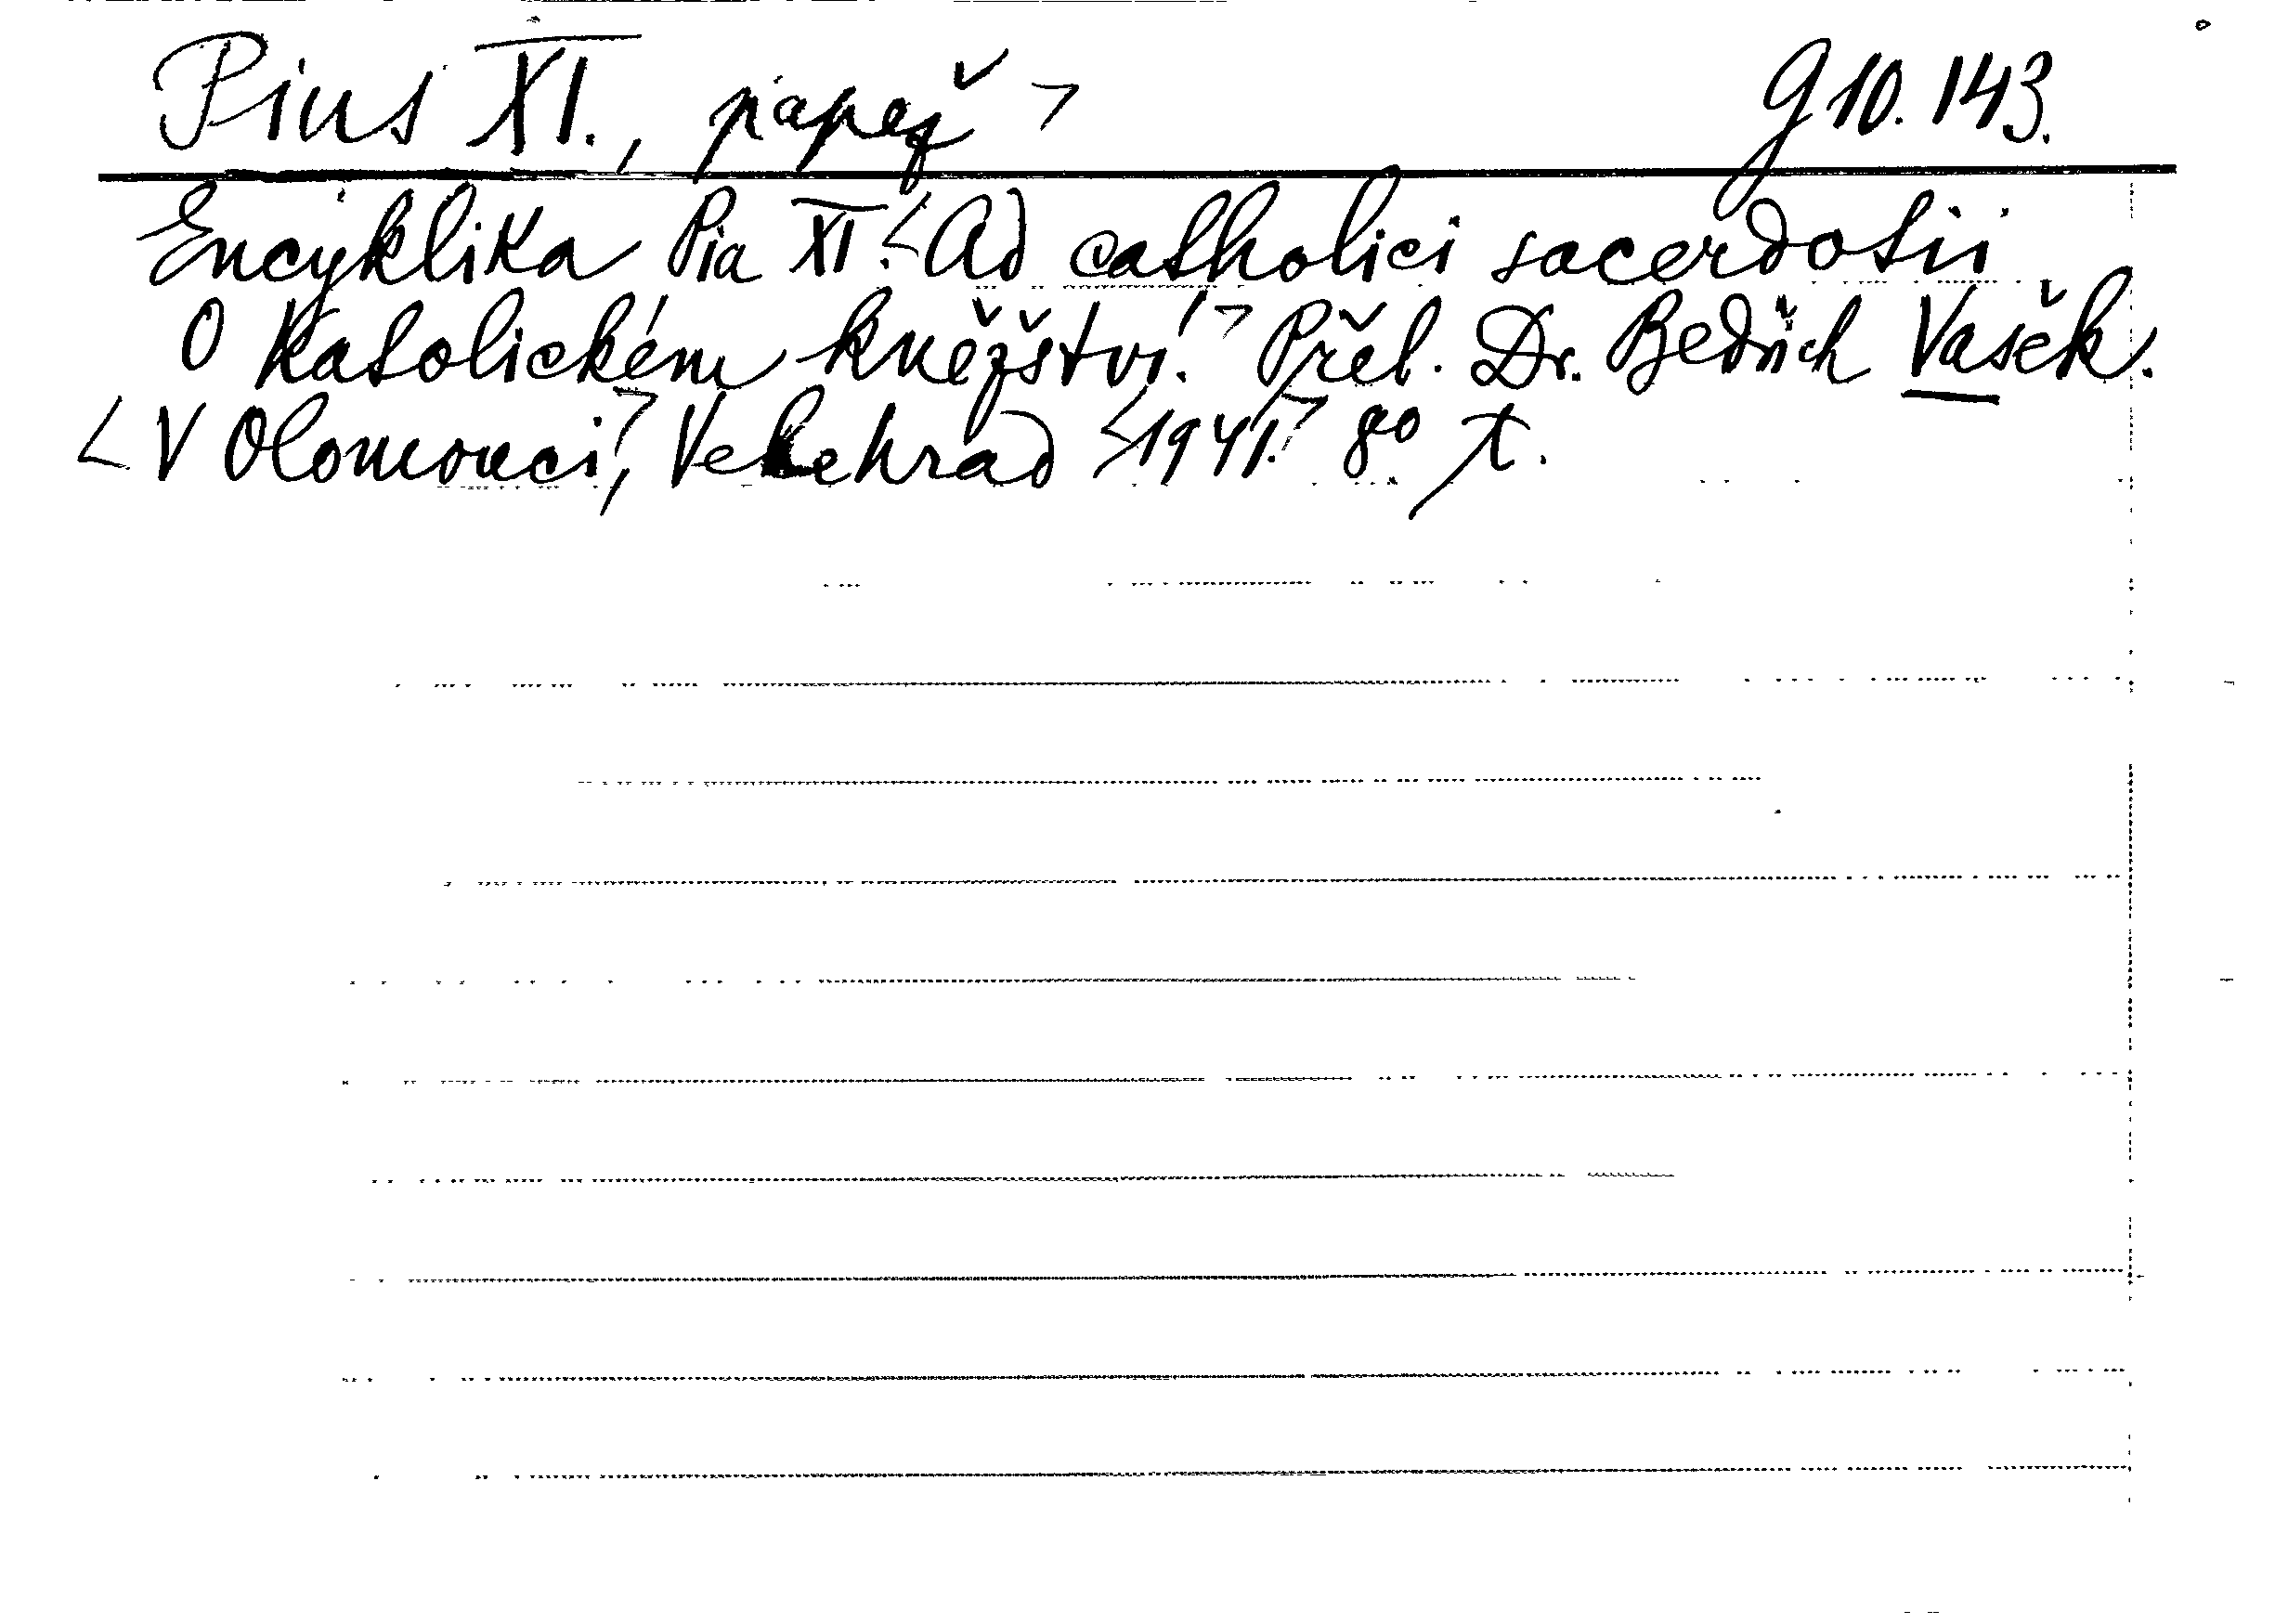 Pius XI., papež > g 10. 143.
Encyklika Pia XI. <Ad catholici sacerdotii
O katolickém kněžství.> Přel. Dr. Bedřich Vašek.
<V Olomouci>, Velehrad <1941.> 8° t.